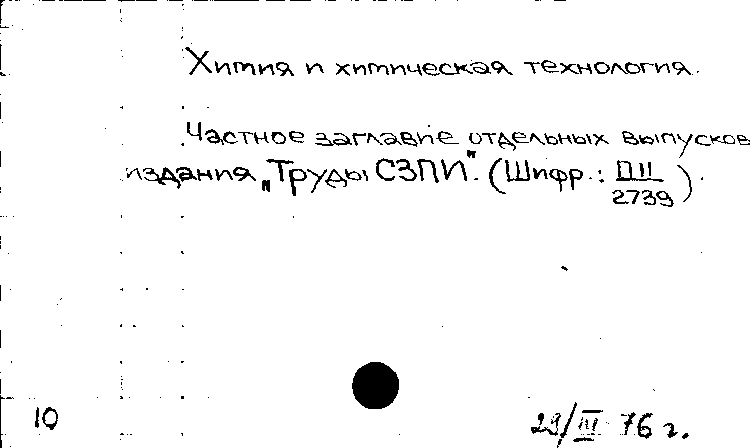 Химия и химическая технология.
Частное заглавие отдельных выпусков
издания „Труды СЗПИ". (Шифр.: ПII
2739).
10
29/III 76 г.